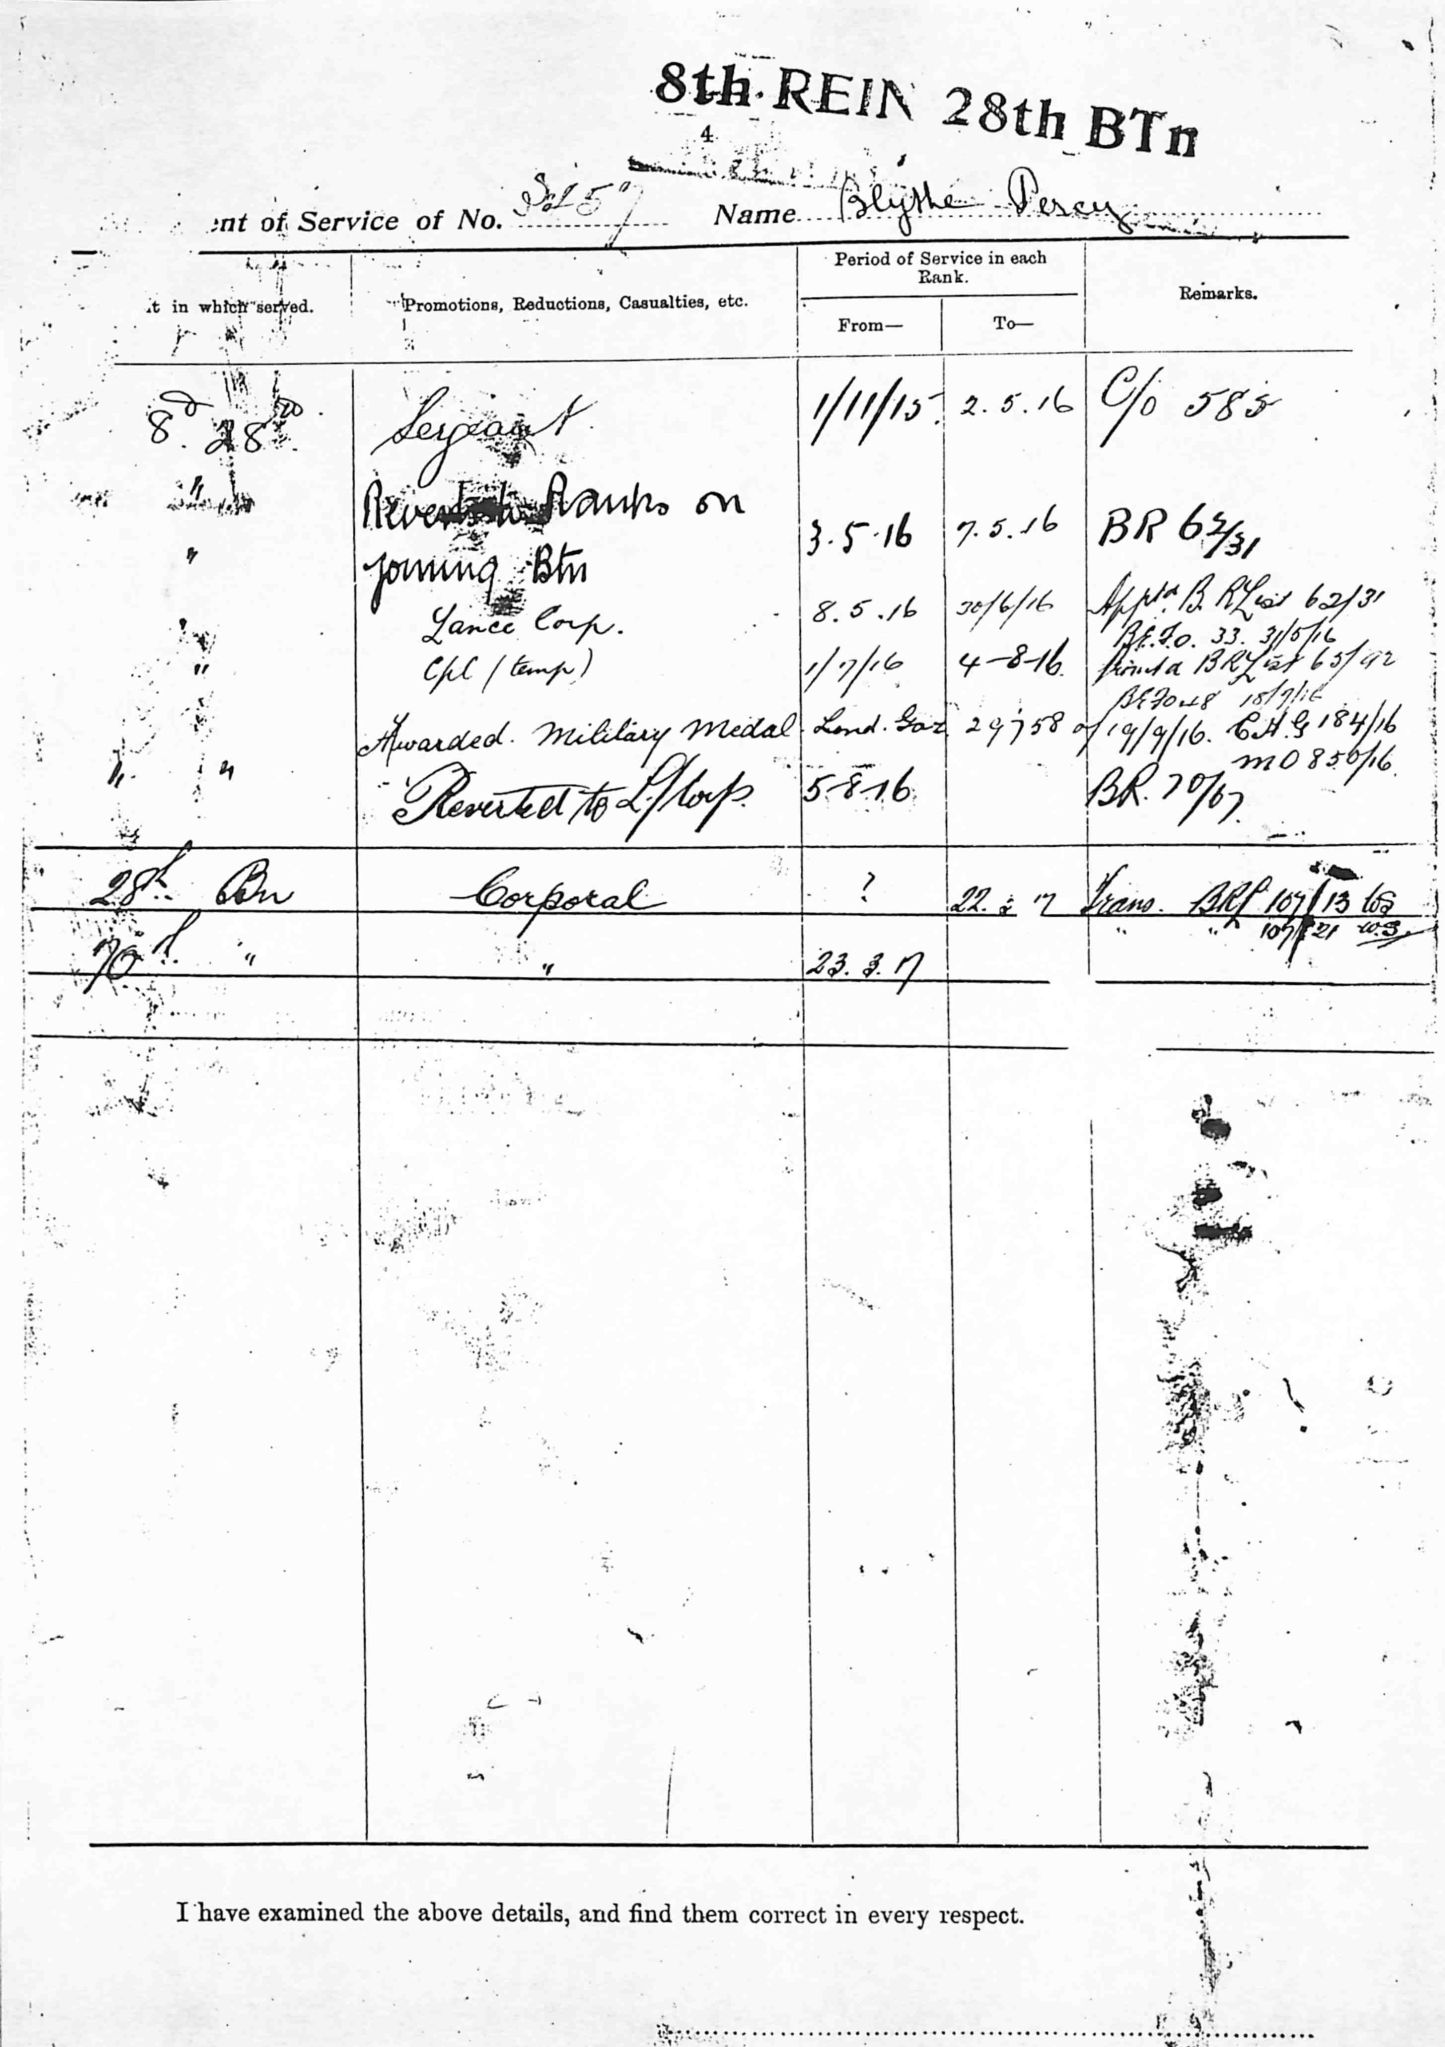 8th REIN 28th BTn
4
ent of Service of No. Name Blythe Percy
t in which served. Promotions, Reductions, Casualties, etc. Period of Service in each Rank. Remarks.
From— To—
8 28 Sergeant 1/11/15. 2.5.16 C/o 585
" Ranks on
" joining Btn 3.5.16 7.5.16 BR 62/31
" Lance Corp. 8.5.16 30/6/16 Apptd B. R List 62/31
B.E.F.O. 33. 31/5/16
" Cpl (temp) 1/7/16 4-8-16. BR List 65/92
18/7/16
Awarded. Military Medal. Lond. Gaz 29758 of 19/9/16. C.A.G 184/16
MO 850/16.
" " Reverted to L/Corp. 5-8-16 BR. 70/67.
28th Bn Corporal ? 22. 3 17 Trans. 107/13
" " 107/21
70th " " 23.3.17
I have examined the above details, and find them correct in every respect.